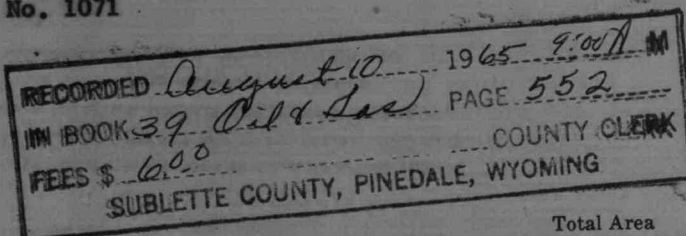 No. 1071
RECORDED August 10 1965 9:00 A M
IN BOOK 39 Oil & Gas PAGE 552
FEES $ 6.00 COUNTY CLERK
SUBLETTE COUNTY, PINEDALE, WYOMING
Total Area